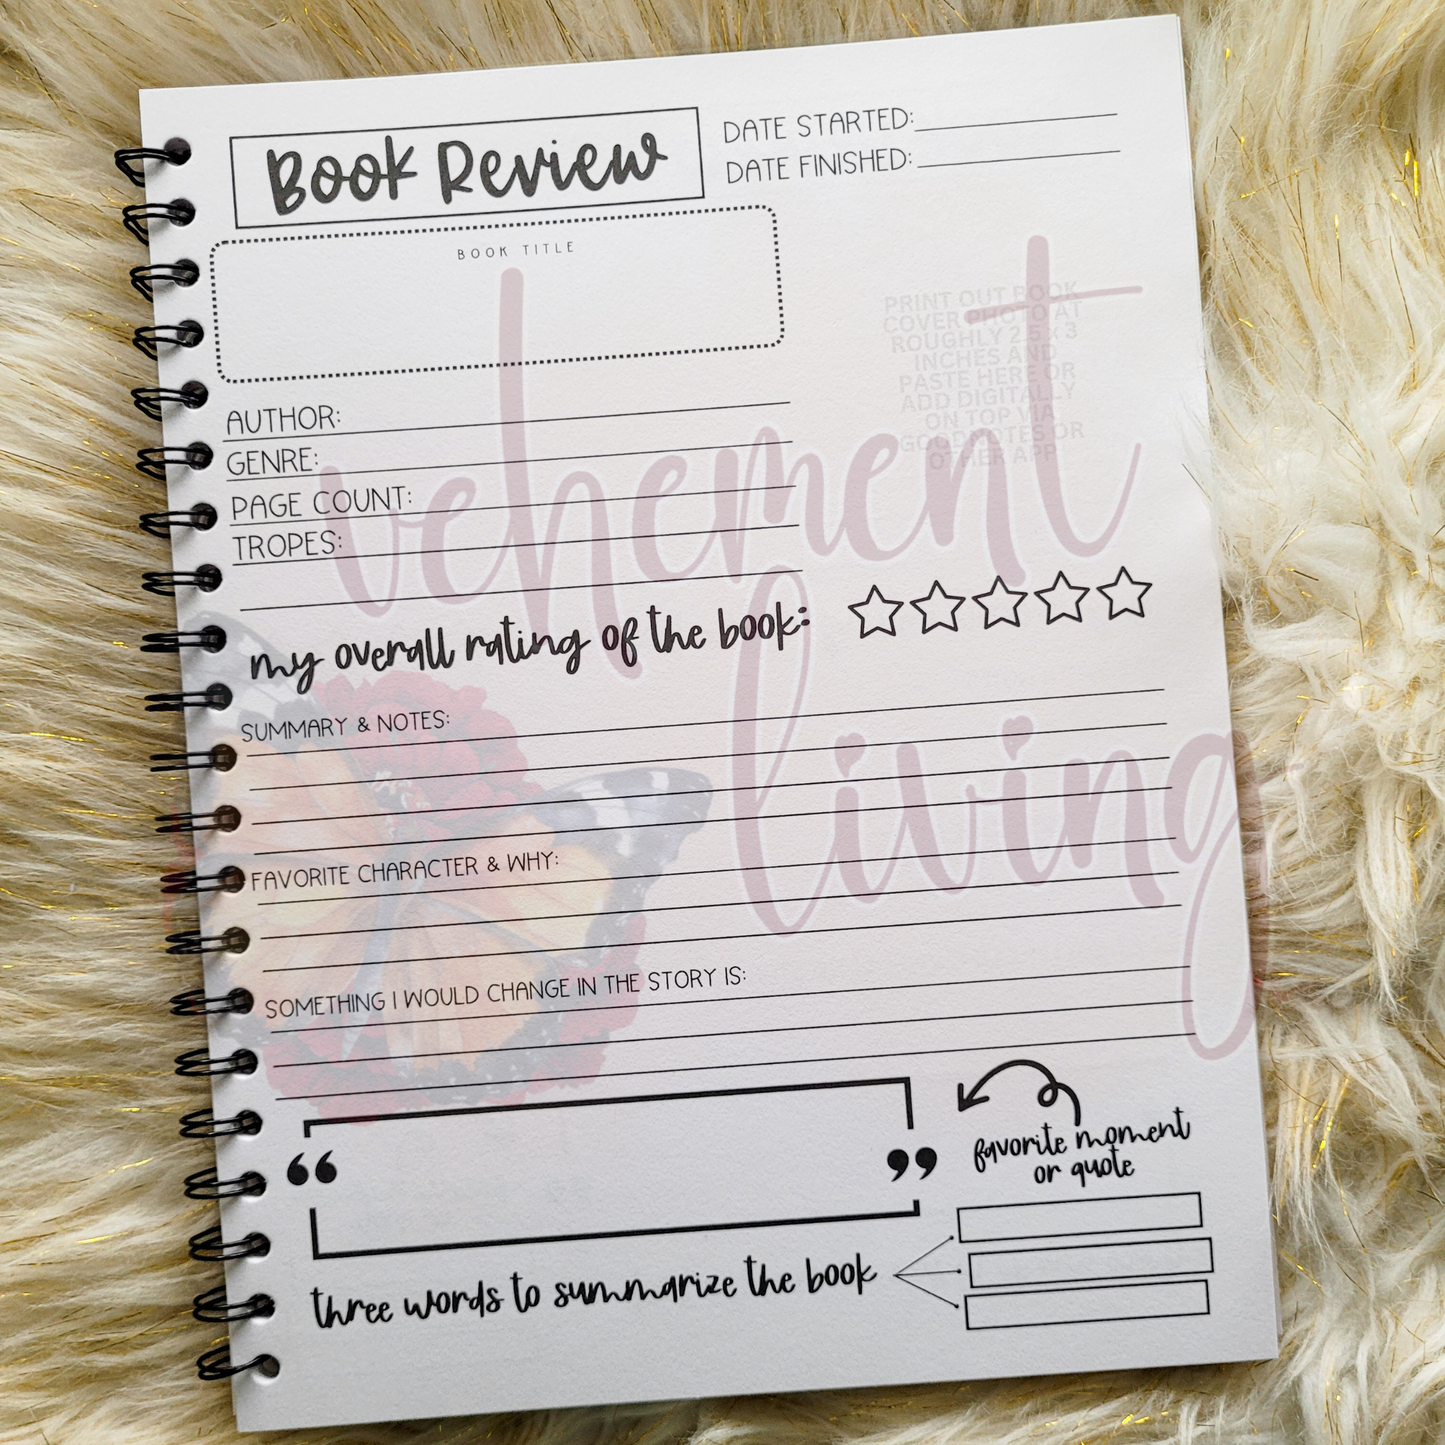 Book Review
DATE STARTED:
DATE FINISHED:
BOOK TITLE
PRINT OUT BOOK
COVER PHOTO AT
ROUGHLY 2.5 x 3
INCHES AND
PASTE HERE OR
ADD DIGITALLY
ON TOP VIA
GOOD NOTES OR
OTHER APP
AUTHOR:
GENRE:
PAGE COUNT:
TROPES:
vehement
living
my overall rating of the book:
SUMMARY & NOTES:
FAVORITE CHARACTER & WHY:
SOMETHING I WOULD CHANGE IN THE STORY IS:
“ ”
favorite moment
or quote
three words to summarize the book